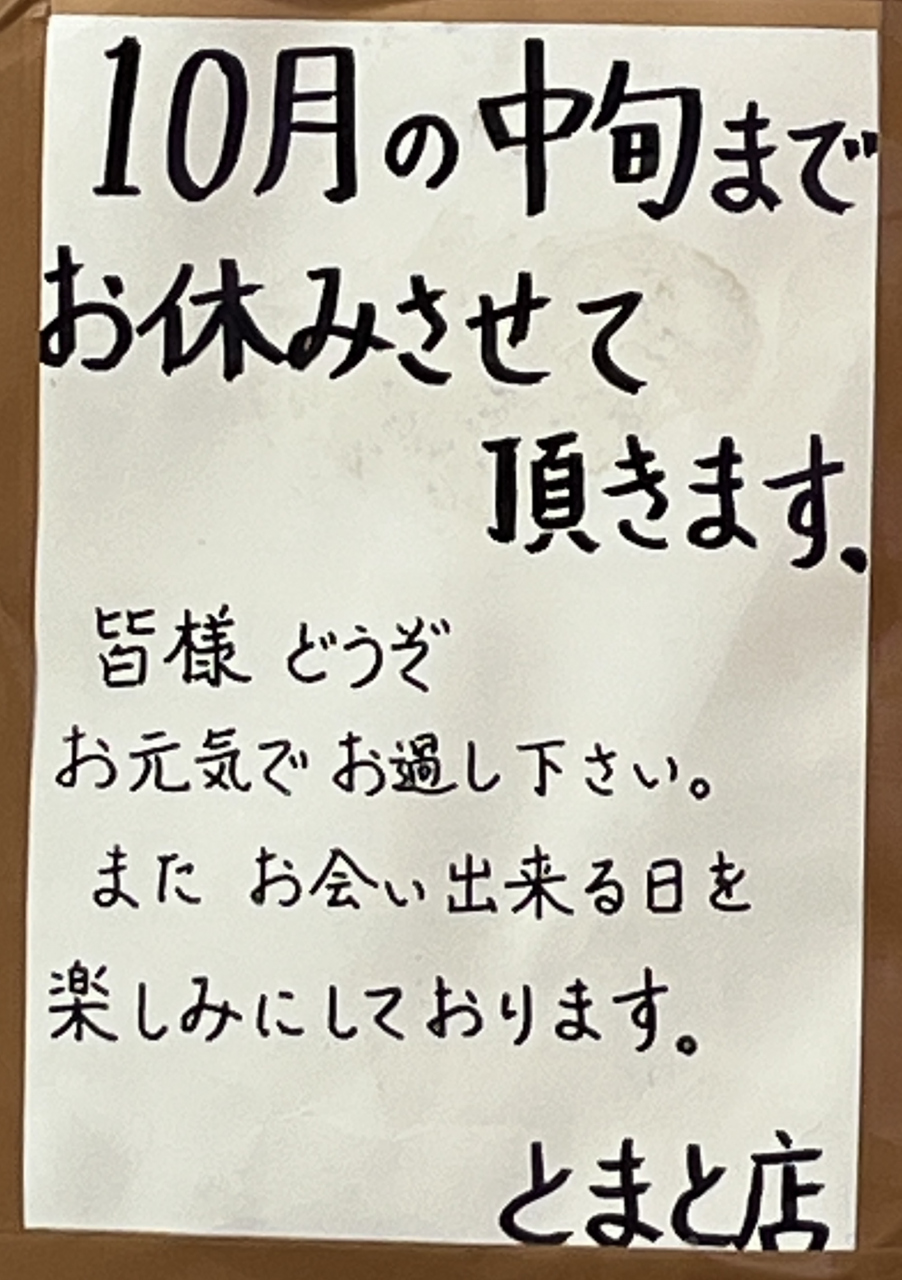 10月の中旬まで
お休みさせて
頂きます.
皆様 どうぞ
お元気で お過し下さい。
また お会い出来る日を
楽しみにしております。
とまと店